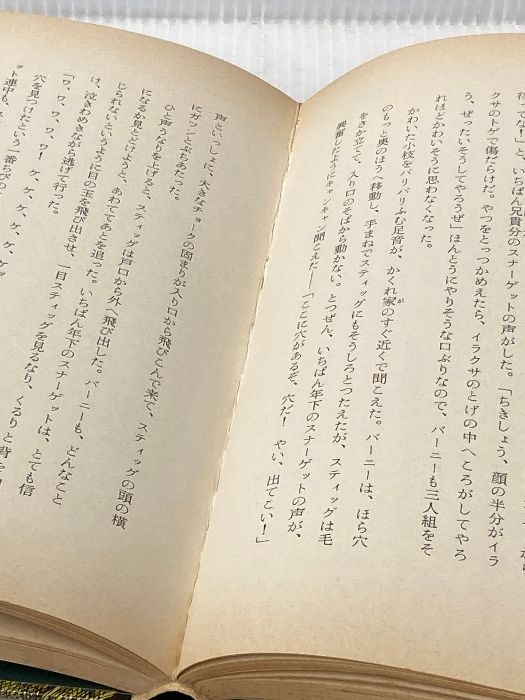 待てな！」と、いちばん兄貴分のスナーゲットの声がした。「ちきしょう、顔の半分がイラ
クサのトゲで傷だらけだ。やつをとっつかめえたら、イラクサのとげの中へころがしてやろ
う、ぜったいそうしてやろうぜ」ほんとうにやりそうな口ぶりなので、バーニーも三人組をそ
れほどかわいそうに思わなくなった。
かわいた小枝をバリバリふむ足音が、かくれ家のすぐ近くで聞こえた。バーニーは、ほら穴
のもっと奥のほうへ移動し、手まねでスティッグにもそうしろとつたえたが、スティッグは毛
をさか立てて、入り口のそばから動かない。とつぜん、いちばん年下のスナーゲットの声が、
興奮したようにキャンキャン聞こえた──「ここに穴があるぞ、穴だ！　やい、出てこい！」
声といっしょに、大きなチョークの固まりが入り口から飛びこんで来て、スティッグの頭の横
にガツンとぶちあたった。
ひと声うなりを上げると、スティッグは戸口から外へ飛び出した。バーニーも、どんなこと
になるか見とどけようと、あわててあとを追った。いちばん年下のスナーゲットは、とても信
じられないというように目の玉を飛び出させ、一目スティッグを見るなり、くるりと背
け、泣きわめきながら逃げて行った。
「ワ、ワ、ワ、ワ！　ケ、ケ、ケ、ケ、ケッ
穴を見つけたという一番ちびの
ット連中も、